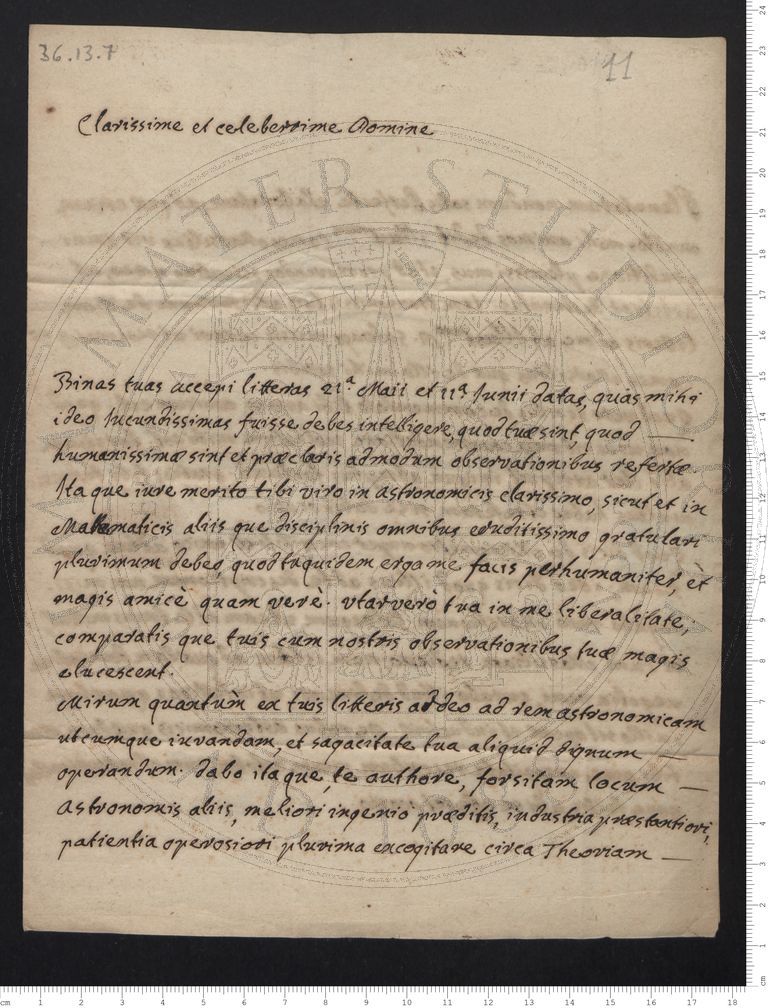 36.13.7
11
Clarissime et celeberrime Domine
Binas tuas accepi litteras 21ª Maii et 11ª Junii datas, quas mihi
ideo Jucundissimas fuisse debes intelligere, quod tuæ sint, quod
humanissimæ sint et præclaris admodum observationibus refertæ.
Itaque iure merito tibi viro in Astronomicis clarissimo, sicut et in
Mathematicis aliis que disciplinis omnibus eruditissimo gratulari
plurimum debeo, quod tu quidem erga me facis perhumaniter, èt
magis amicè quam verè. Utar verò tua in me liberalitate;
comparatis que tuis cum nostris observationibus tuæ magis
elucescent.
Mirum quantùm ex tuis litteris ardeo ad rem astronomicam
utcumque iuvandam, et sagacitate tua aliquid dignum
operandum. Dabo itaque, te authore, forsitam locum
Astronomis aliis, meliori ingenio præditis, industria præstantiori,
patientia operosiori plurima excogitare circa Theoriam
ALMA MATER STUDIORUM